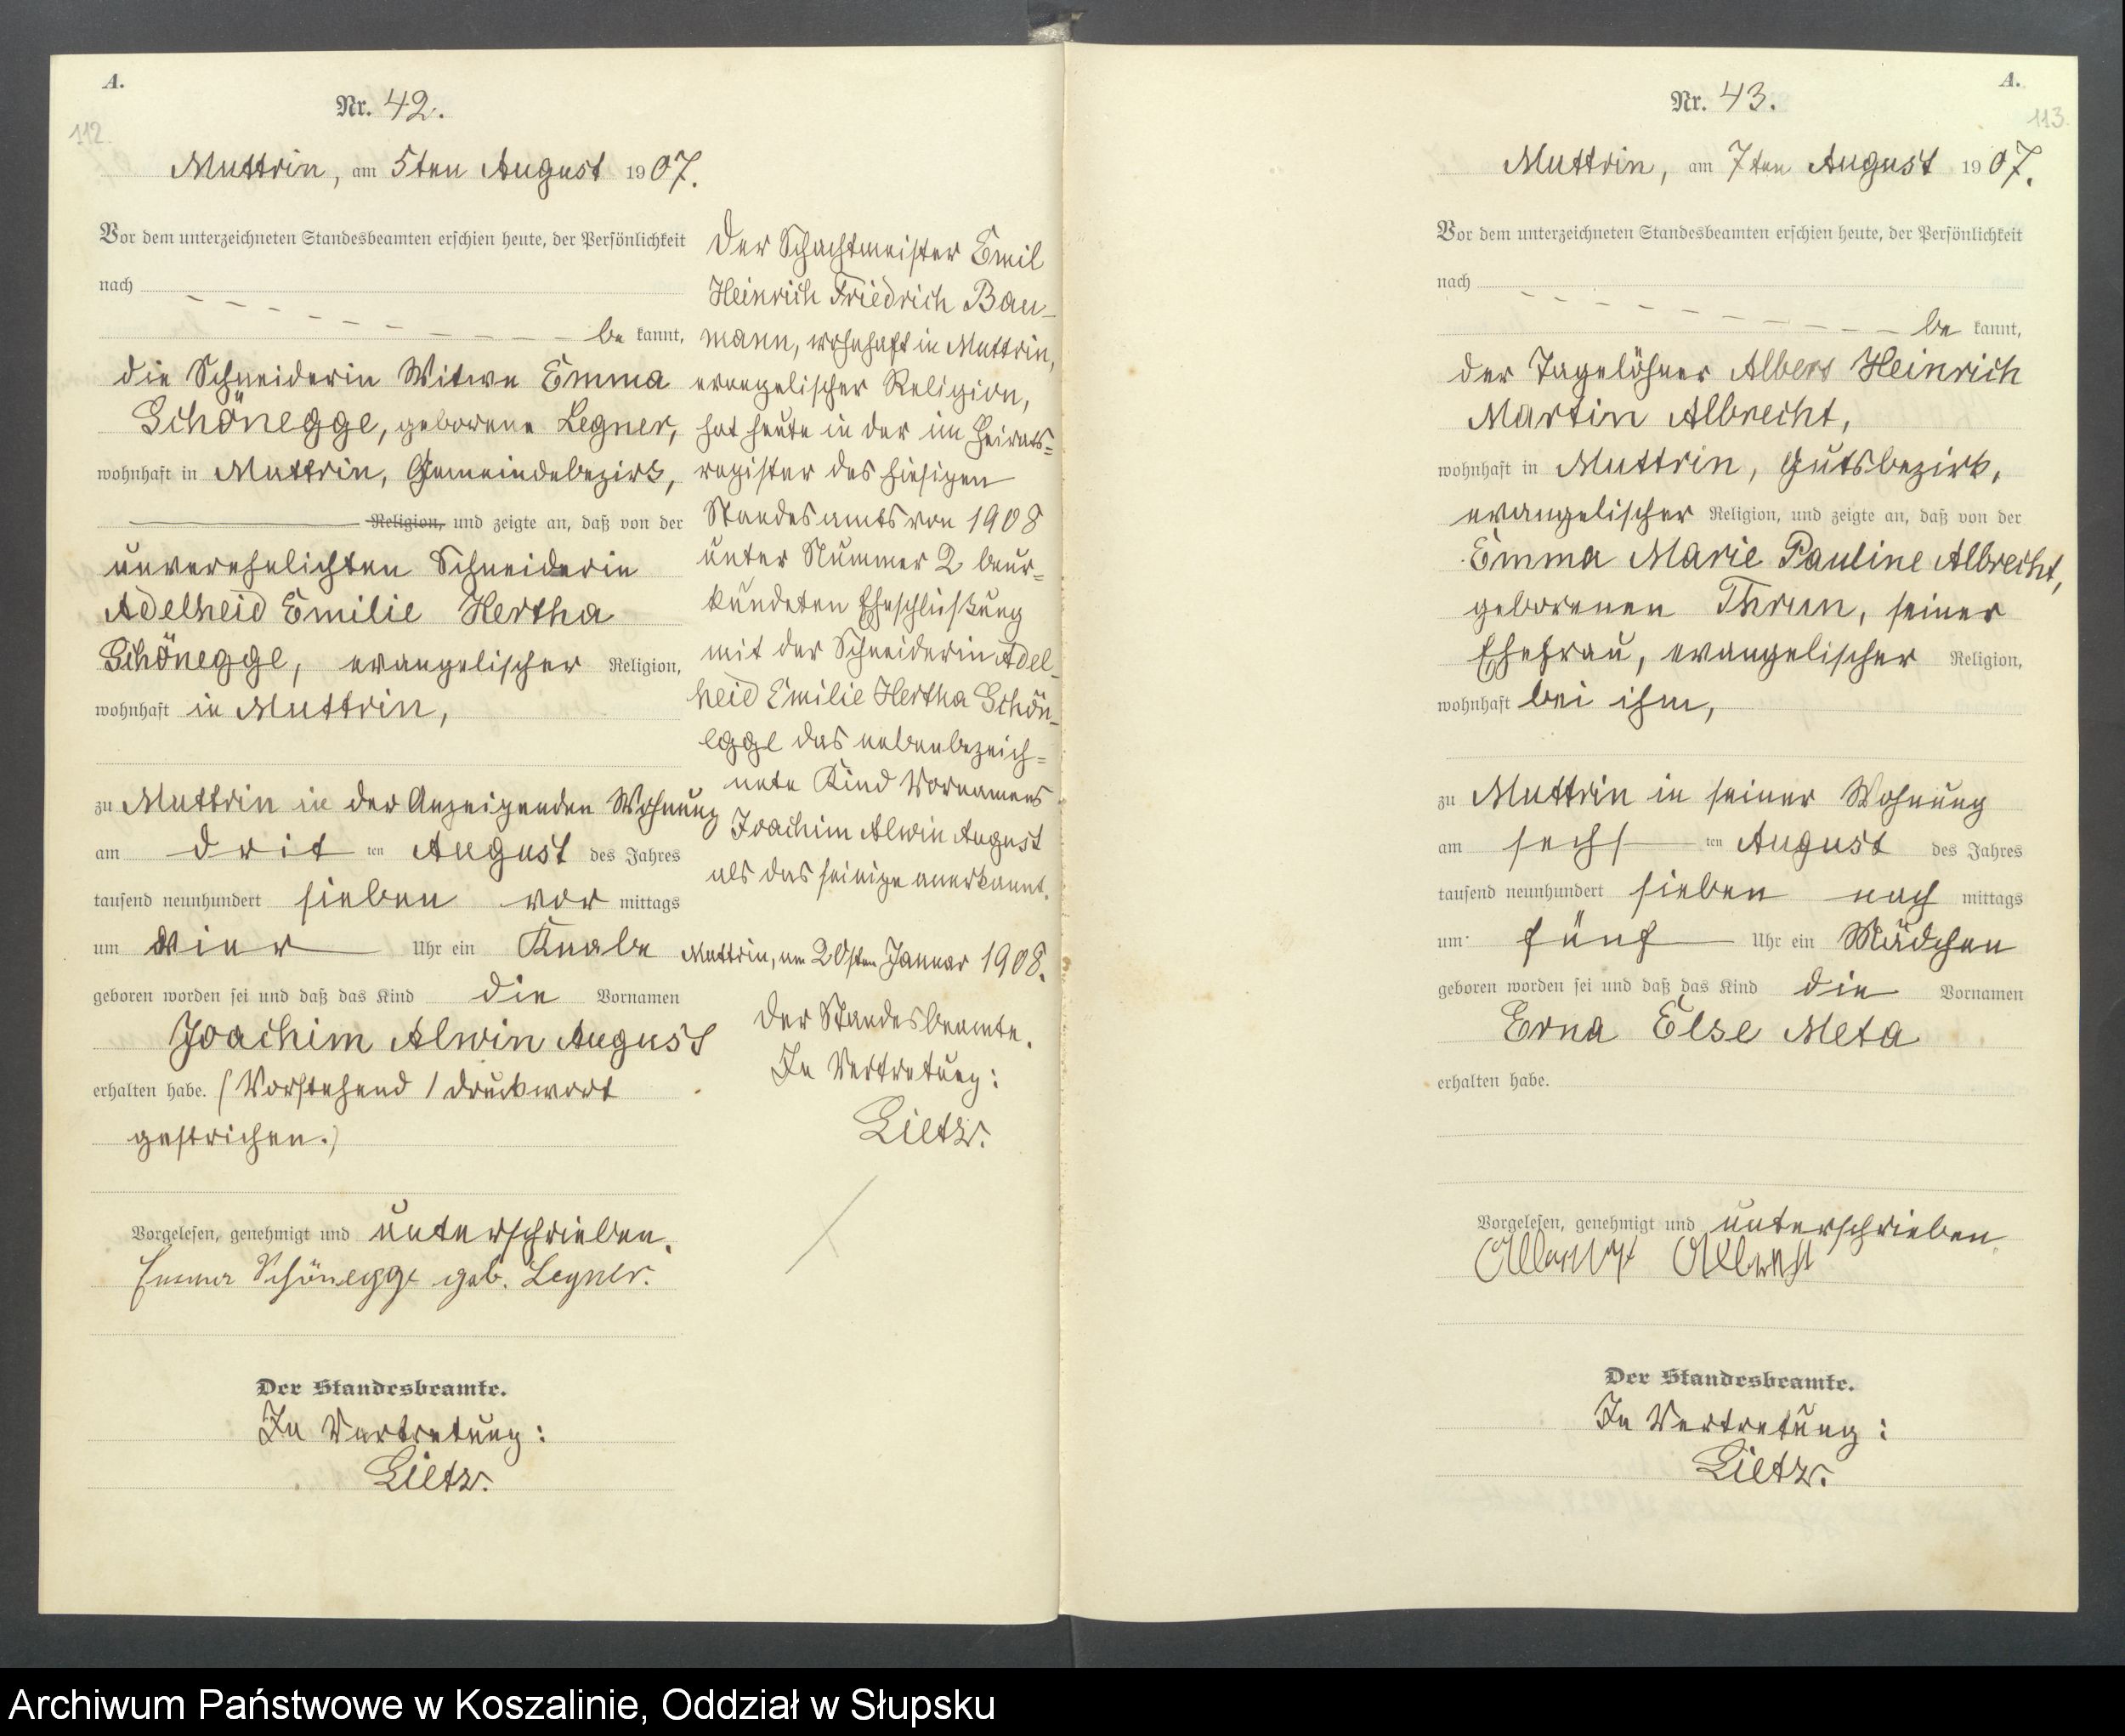 A.
Nr. 42.
112.
Muttrin, am 5ten August 1907.
Vor dem unterzeichneten Standesbeamten erschien heute, der Persönlichkeit
nach
be kannt,
die Schneiderin Witwe Emma
Schönegge, geborene Legner,
wohnhaft in Muttrin, Gemeindebezirk,
Religion, und zeigte an, daß von der
unverehelichten Schneiderin
Adelheid Emilie Hertha
Schönegge, evangelischer Religion,
wohnhaft in Muttrin,
zu Muttrin in der Anzeigenden Wohnung
am dritten August des Jahres
tausend neunhundert sieben vor mittags
um vier Uhr ein Knabe
geboren worden sei und daß das Kind die Vornamen
Joachim Alwin August
erhalten habe. (Vorstehend 1 Druckwort
gestrichen.)
Vorgelesen, genehmigt und unterschrieben.
Emma Schönegge geb. Legner.
Der Standesbeamte.
In Vertretung:
Lietz.
Der Schachtmeister Emil
Heinrich Friedrich Bau-
mann, wohnhaft in Muttrin,
evangelischer Religion,
hat heute in der im Heirats=
register des hiesigen
Standesamts von 1908
unter Nummer 2 beur=
kundeten Eheschließung
mit der Schneiderin Adel-
heid Emilie Hertha Schön-
egge das nebenbezeich=
nete Kind Vornamens
Joachim Alwin August
als das seinige anerkannt.
Muttrin, am 20sten Januar 1908.
Der Standesbeamte.
In Vertretung:
Lietz.
A.
Nr. 43.
113.
Muttrin, am 7ten August 1907.
Vor dem unterzeichneten Standesbeamten erschien heute, der Persönlichkeit
nach
be kannt,
der Tagelöhner Albert Heinrich
Martin Albrecht,
wohnhaft in Muttrin, Gutsbezirk,
evangelischer Religion, und zeigte an, daß von der
Emma Marie Pauline Albrecht,
geborenen Thrun, seiner
Ehefrau, evangelischer Religion,
wohnhaft bei ihm,
zu Muttrin in seiner Wohnung
am sechsten August des Jahres
tausend neunhundert sieben nach mittags
um fünf Uhr ein Mädchen
geboren worden sei und daß das Kind die Vornamen
Erna Else Meta
erhalten habe.
Vorgelesen, genehmigt und unterschrieben.
Albrecht
Der Standesbeamte.
In Vertretung:
Lietz.
Archiwum Państwowe w Koszalinie, Oddział w Słupsku